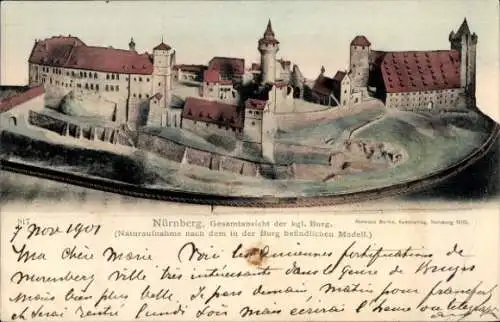 817
Nürnberg, Gesamtansicht der kgl. Burg.
(Naturaufnahme nach dem in der Burg befindlichen Modell.)
Hermann Martin, Kunstverlag, Nürnberg
7 Nov 1901
Ma chère Marie Voici les anciennes fortifications de
Nuremberg Ville très intéressante dans le genre de Bruges
Mais bien plus belle. Je pars demain matin pour
et serai rentré